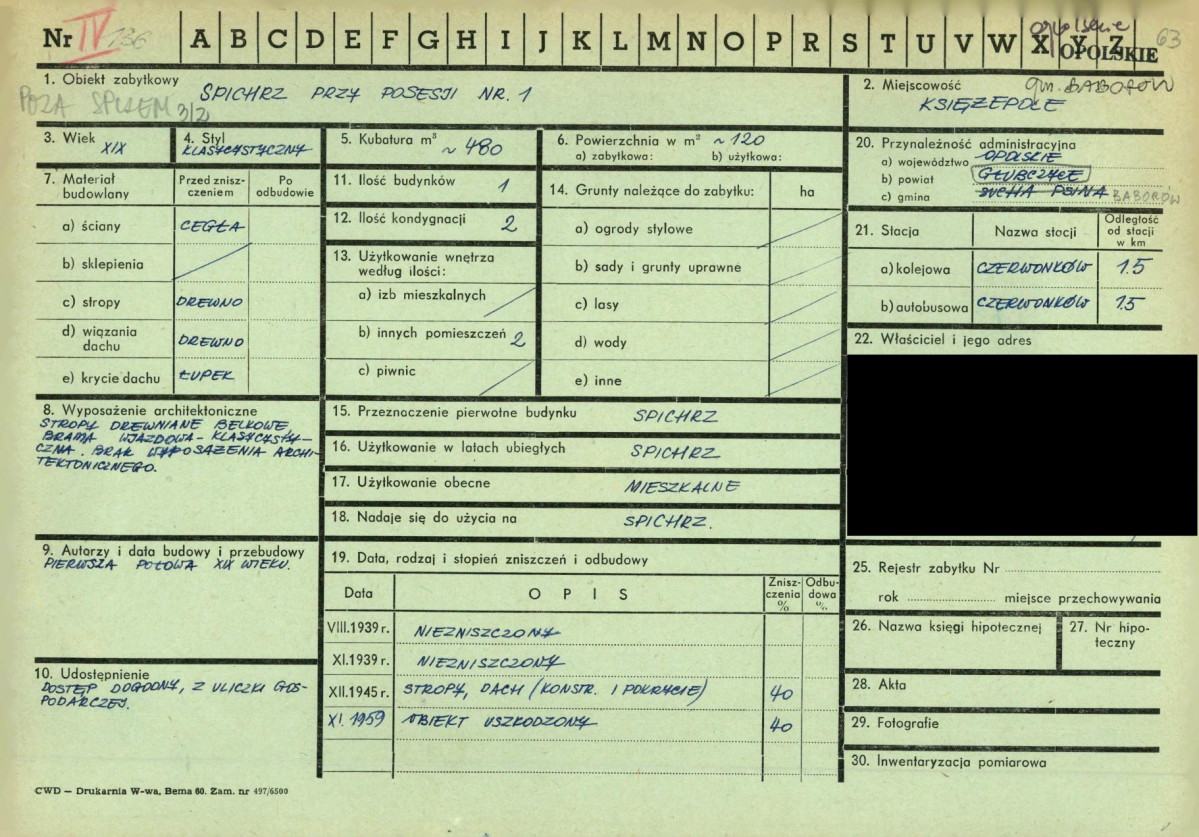 Nr IV 136 A B C D E F G H I J K L M N O P R S T U V W X Y Z opolskie OPOLSKIE 63
1. Obiekt zabytkowy
SPICHRZ PRZY POSESJI NR. 1
POZA SPISEM 3/2
2. Miejscowość gm. BABORÓW
KSIĘŻEPOLE
3. Wiek
XIX
4. Styl
KLASYCYSTYCZNY
5. Kubatura m³
~ 480
6. Powierzchnia w m² ~ 120
a) zabytkowa: b) użytkowa:
7. Materiał budowlany
Przed zniszczeniem
Po odbudowie
a) ściany CEGŁA
b) sklepienia
c) stropy DREWNO
d) wiązania dachu DREWNO
e) krycie dachu ŁUPEK
8. Wyposażenie architektoniczne
STROPY DREWNIANE BELKOWE
BRAMA WJAZDOWA - KLASYCYSTY-
CZNA. BRAK WYPOSAŻENIA ARCHI-
TEKTONICZNEGO.
9. Autorzy i data budowy i przebudowy
PIERWSZA POŁOWA XIX WIEKU.
10. Udostępnienie
DOSTĘP DOGODNY, Z ULICZKI GOS-
PODARCZEJ.
11. Ilość budynków 1
12. Ilość kondygnacji 2
13. Użytkowanie wnętrza
według ilości:
a) izb mieszkalnych
b) innych pomieszczeń 2
c) piwnic
14. Grunty należące do zabytku: ha
a) ogrody stylowe
b) sady i grunty uprawne
c) lasy
d) wody
e) inne
15. Przeznaczenie pierwotne budynku SPICHRZ
16. Użytkowanie w latach ubiegłych SPICHRZ
17. Użytkowanie obecne MIESZKALNE
18. Nadaje się do użycia na SPICHRZ.
19. Data, rodzaj i stopień zniszczeń i odbudowy
Data OPIS Zniszczenia % Odbudowa %
VIII.1939 r. NIEZNISZCZONY
XI.1939 r. NIEZNISZCZONY
XII.1945 r. STROPY, DACH (KONSTR. I POKRYCIE) 40
XI. 1959 OBIEKT USZKODZONY 40
20. Przynależność administracyjna
a) województwo OPOLSKIE
b) powiat GŁUBCZYCE
c) gmina SUCHA PSINA BABORÓW
21. Stacja Nazwa stacji Odległość od stacji w km
a) kolejowa CZERWONKÓW 1.5
b) autobusowa CZERWONKÓW 1.5
22. Właściciel i jego adres
25. Rejestr zabytku Nr
rok miejsce przechowywania
26. Nazwa księgi hipotecznej
27. Nr hipoteczny
28. Akta
29. Fotografie
30. Inwentaryzacja pomiarowa
CWD — Drukarnia W-wa, Bema 60. Zam. nr 497/6500